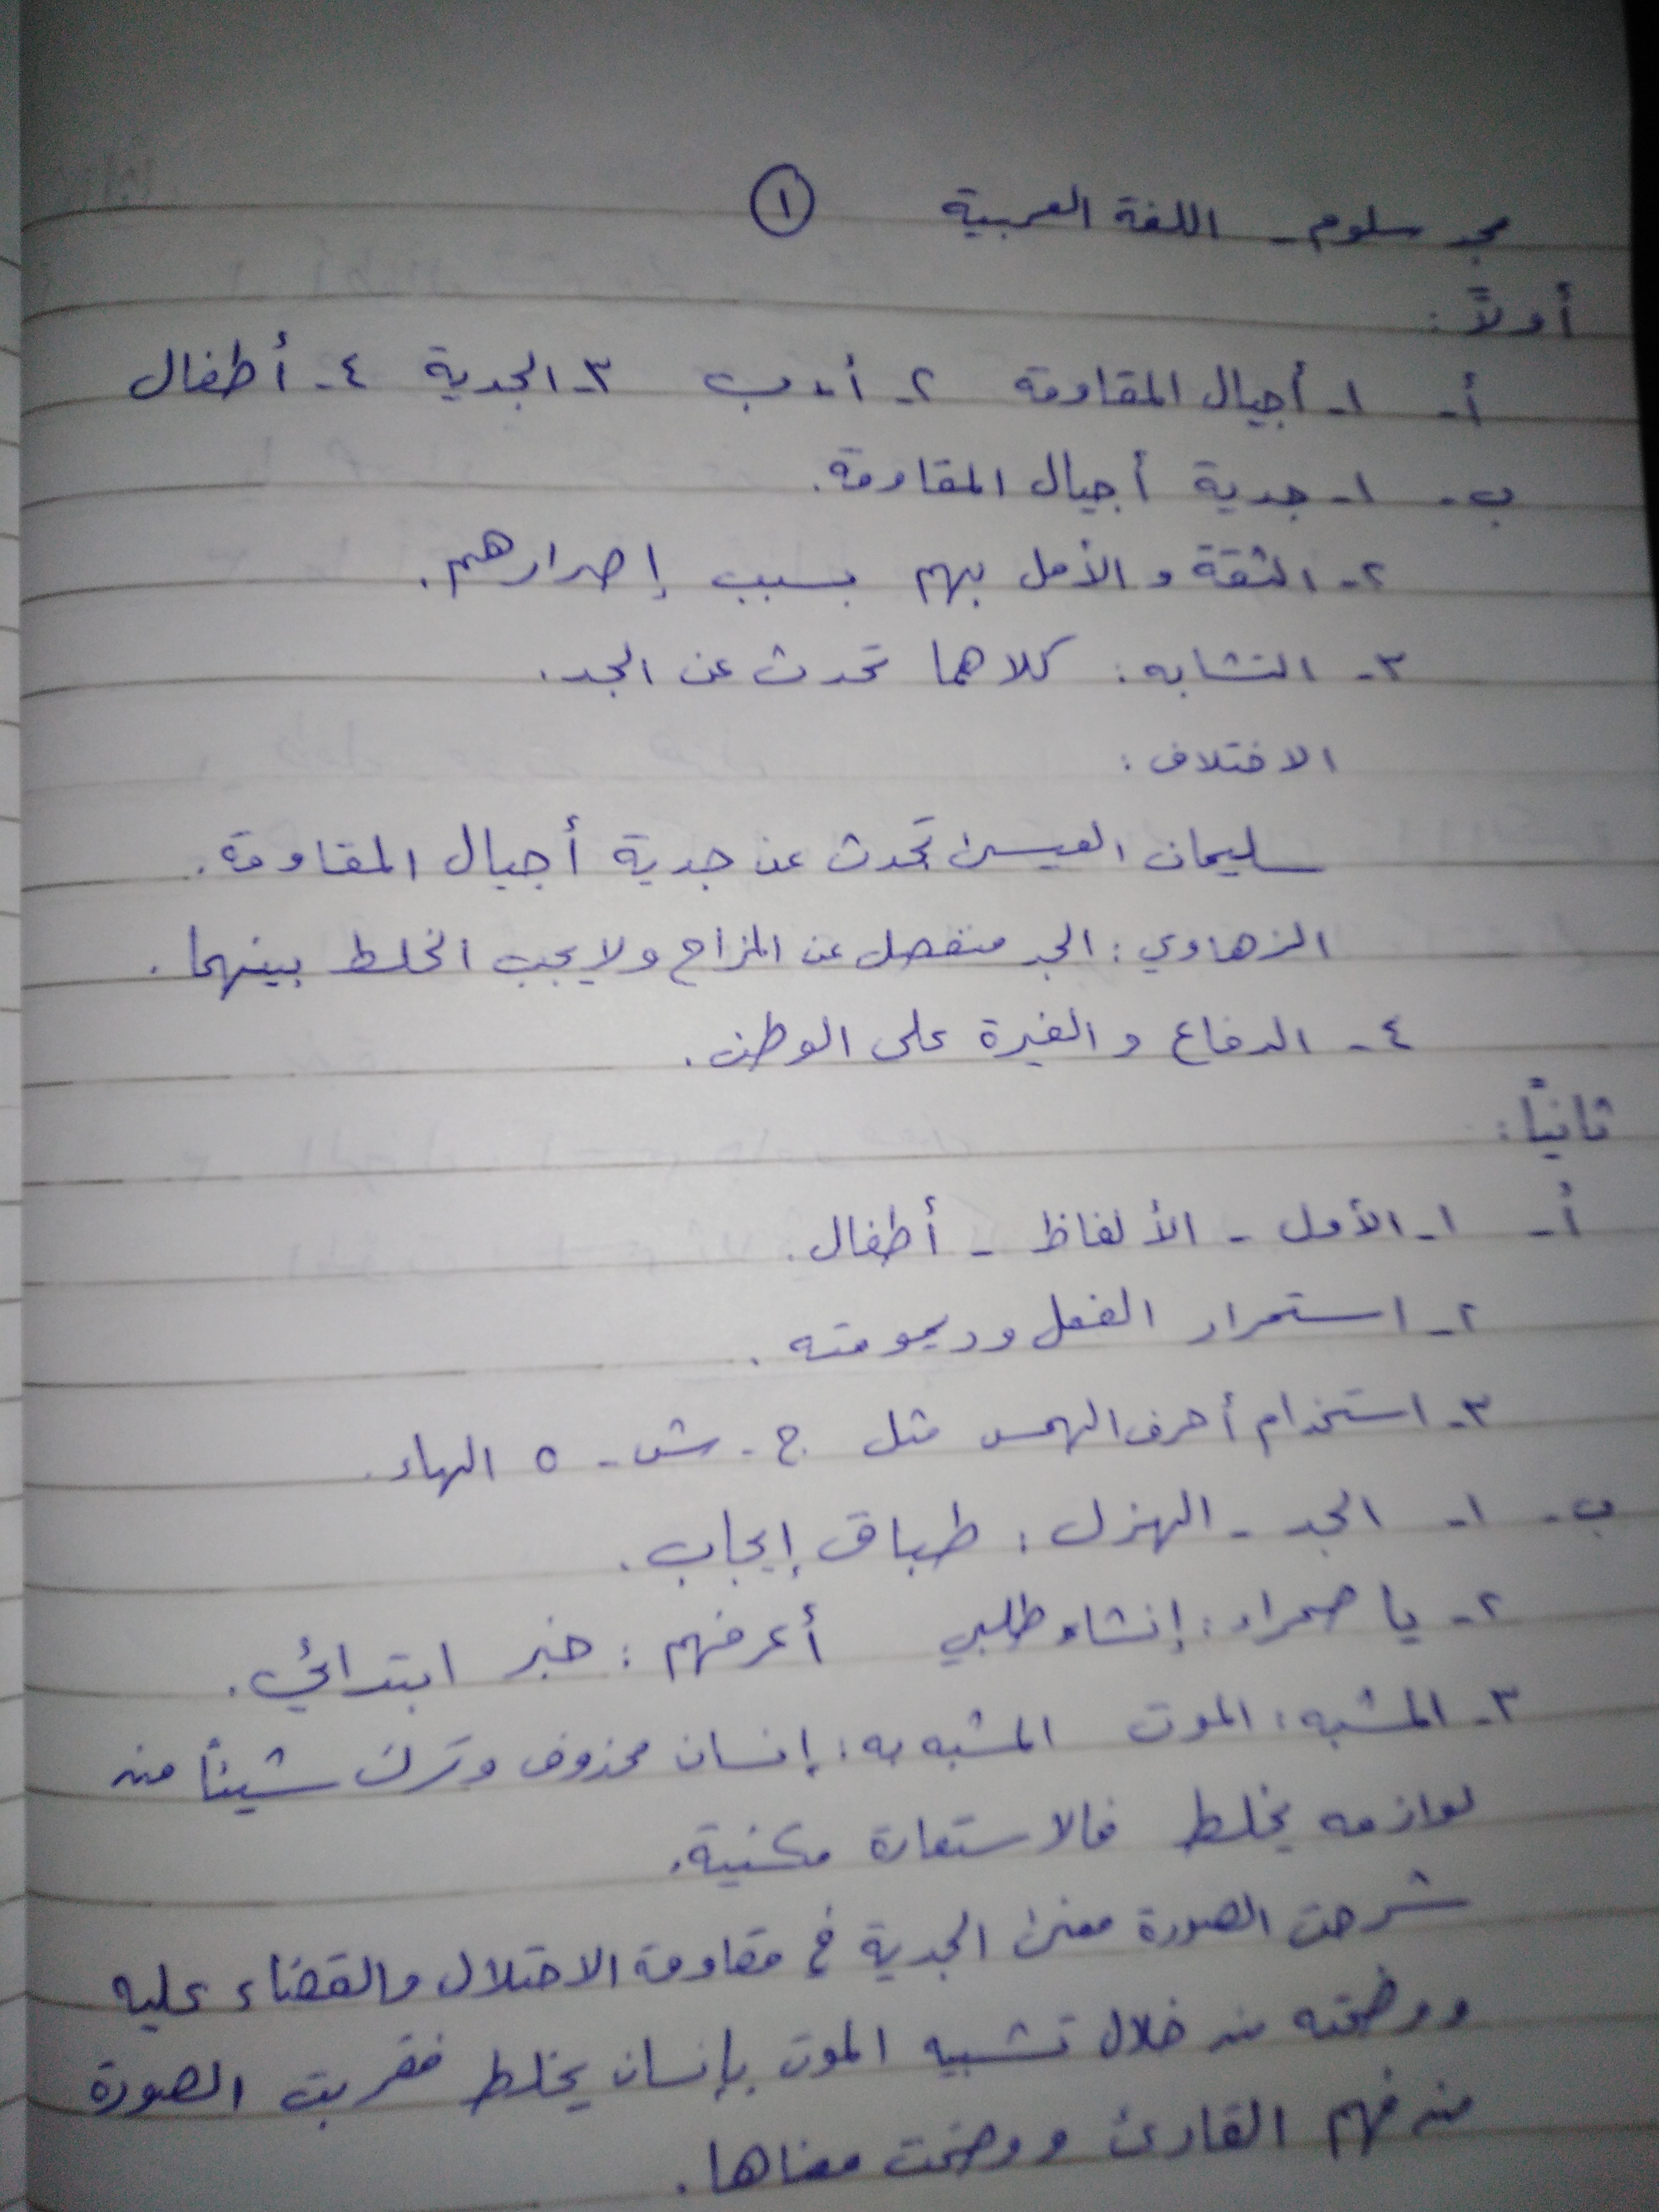 مجد سلوم - اللغة العربية ①
أولاً:
أ- ١- أجيال المقاومة ٢- أ + ب ٣- الجدية ٤- أطفال
ب- ١- جدية أجيال المقاومة.
٢- الثقة والأمل بهم بسبب إصرارهم.
٣- التشابه: كلاهما تحدث عن الجد.
الاختلاف:
سليمان العيسى تحدث عن جدية أجيال المقاومة.
الزهاوي: الجد منفصل عن المزاح ولا يجب الخلط بينهما.
٤- الدفاع والغيرة على الوطن.
ثانياً:
أ- ١- الأمل - الألفاظ - أطفال.
٢- استمرار الفعل وديمومته.
٣- استخدام أحرف الهمس مثل ح - ش - ه الهاء.
ب- ١- الجد - الهزل: طباق إيجاب.
٢- يا صحراء: إنشاء طلبي أعرفهم: خبر ابتدائي.
٣- المشبه: الموت المشبه به: إنسان محذوف وترك شيئاً من
لوازمه يخلط فالاستعارة مكنية.
شرحت الصورة معنى الجدية في مقاومة الاحتلال والقضاء عليه
ووضحته من خلال تشبيه الموت بإنسان يخلط فقربت الصورة
من فهم القارئ ووضحت معناها.